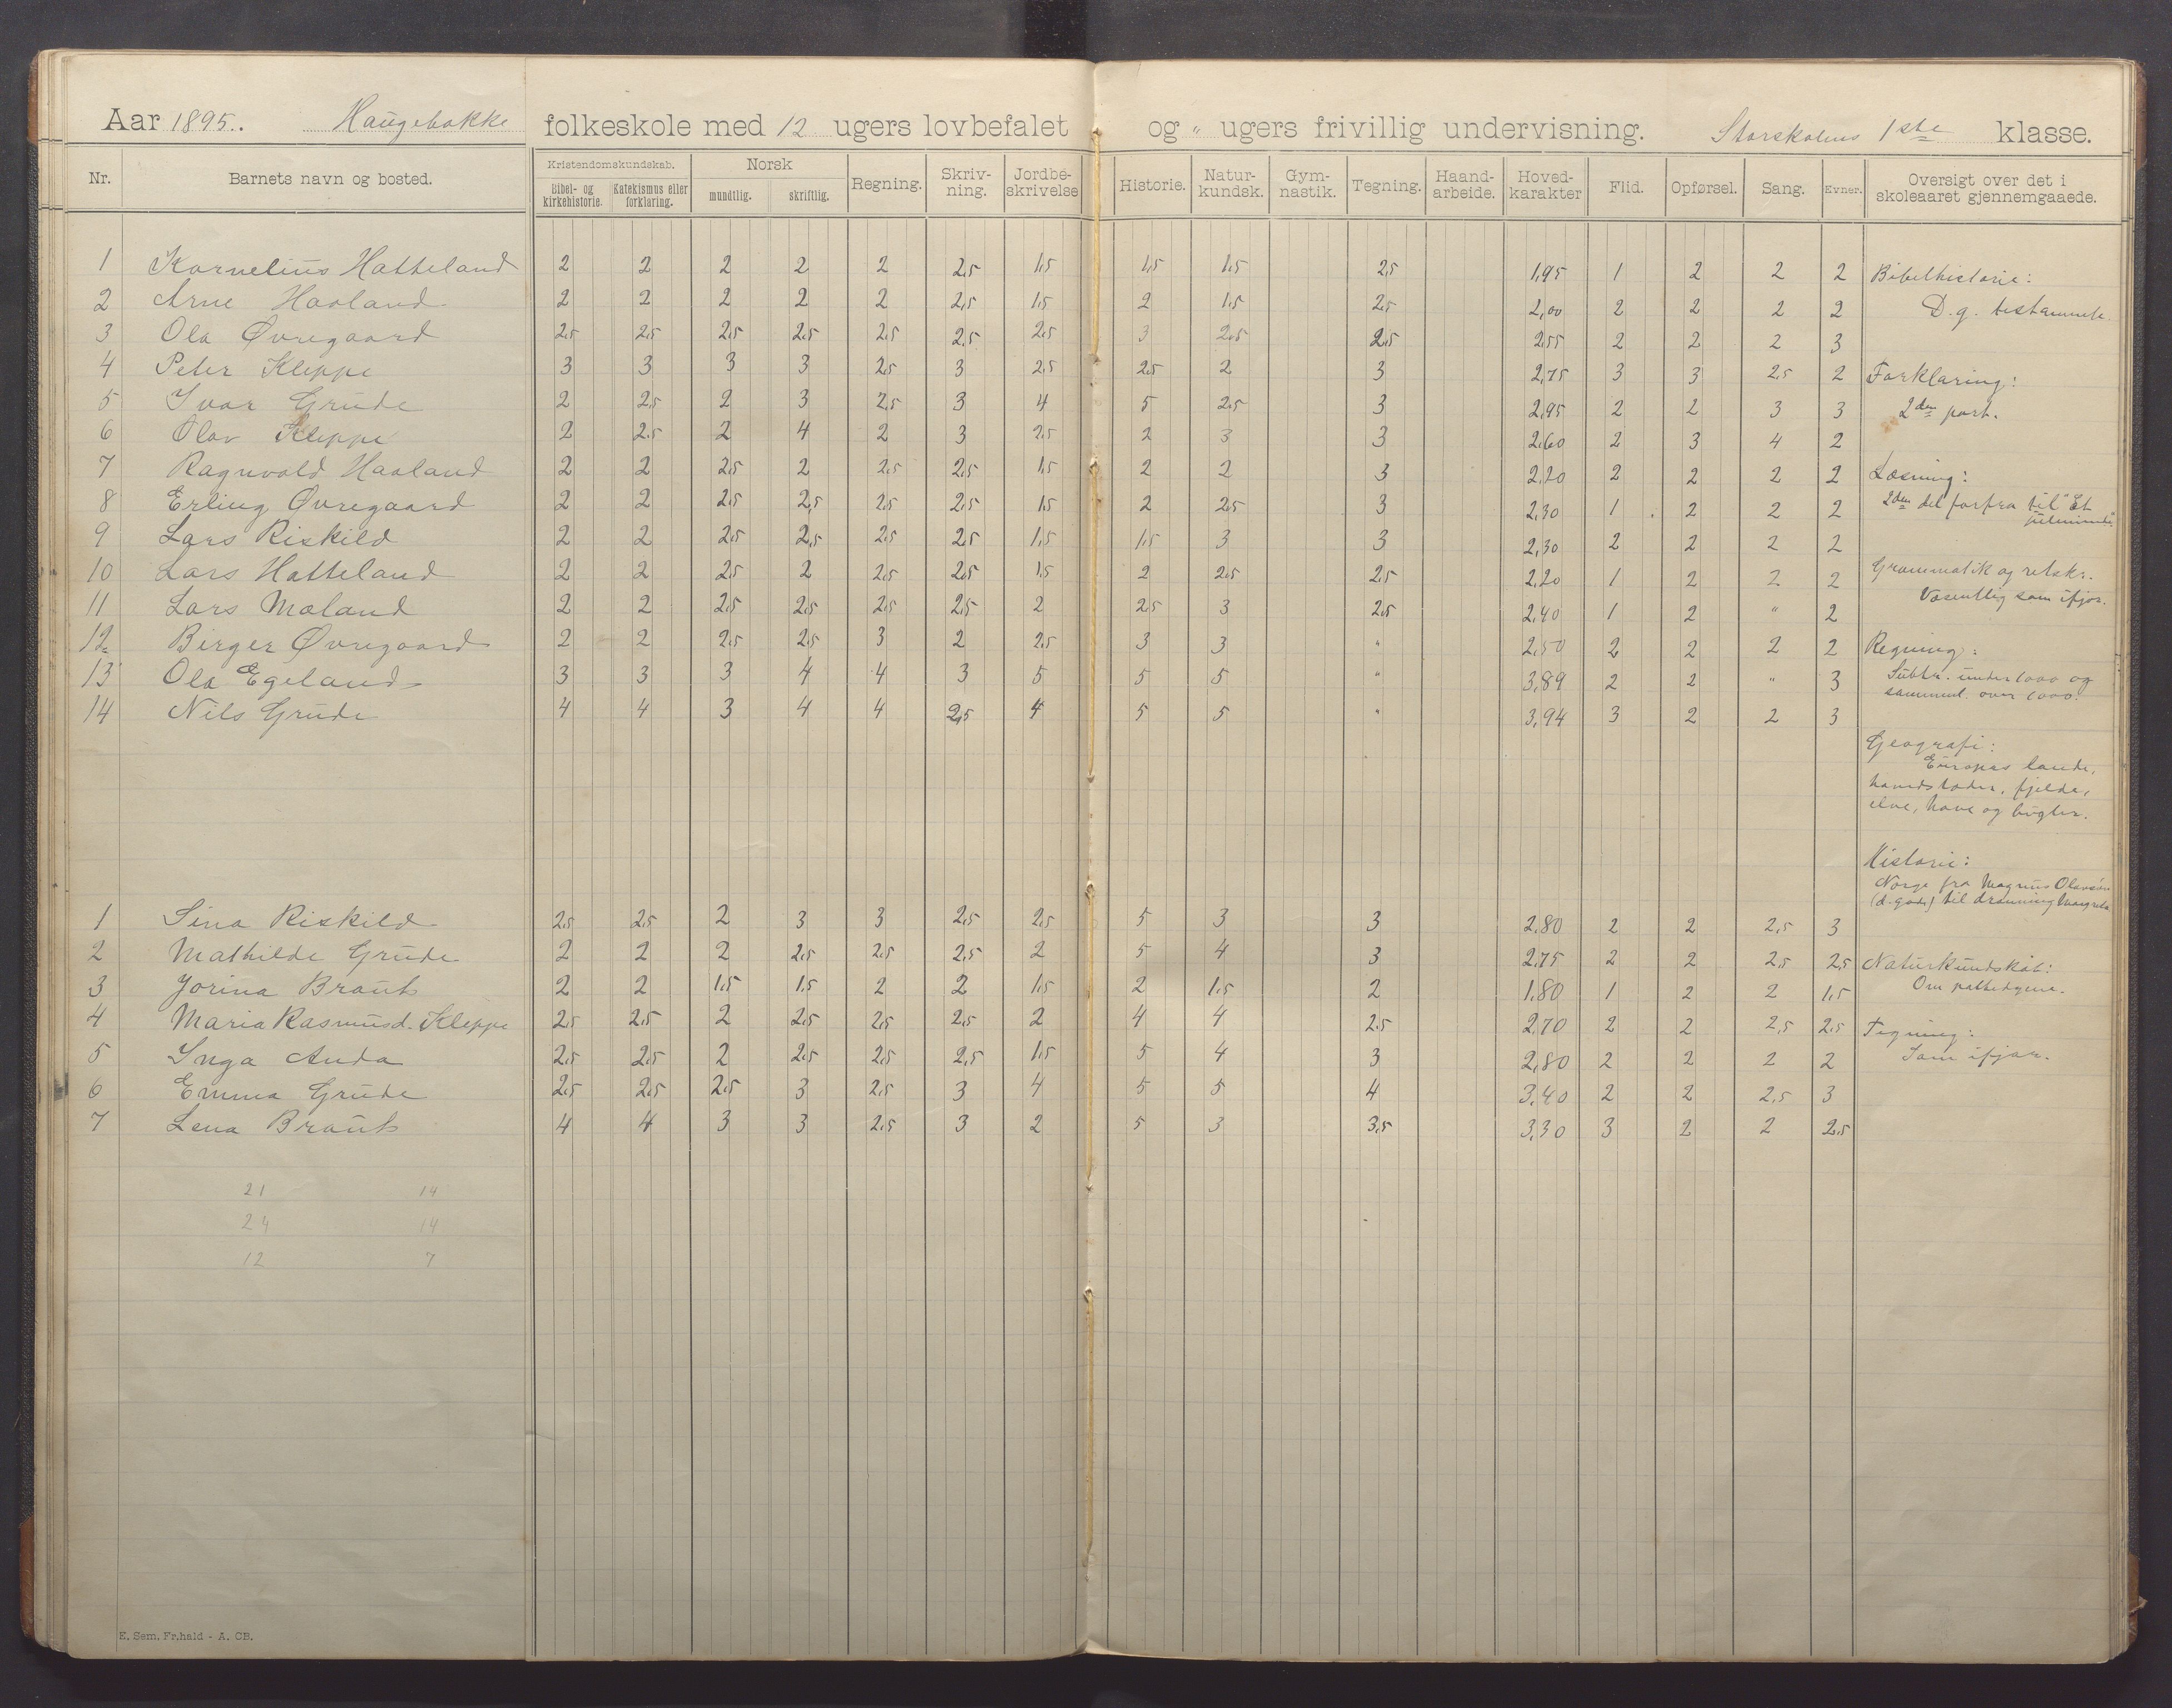 Aar 1895. Haugebakke folkeskole med 12 ugers lovbefalet og " ugers frivillig undervisning. Storskolens 1ste klasse.
Nr. Barnets navn og bosted. Kristendomskundskab. Bibel- og kirkehistorie. Katekismus eller forklaring. Norsk mundtlig. skriftlig. Regning. Skriv-ning. Jordbe-skrivelse Historie. Natur-kundsk. Gym-nastik. Tegning. Haand-arbeide. Hoved-karakter Flid. Opførsel. Sang. Evner. Oversigt over det i skoleaaret gjennemgaaede.
1 Kornelius Hatteland 2 2 2 2 2 2,5 1,5 1,5 1,5 2,5 1,95 1 2 2 2
2 Arne Haaland 2 2 2 2 2 2,5 1,5 2 1,5 2,5 2,00 2 2 2 2
3 Ola Øvregaard 2,5 2,5 2,5 2,5 2,5 2,5 2,5 3 2,5 2,5 2,55 2 2 2 3
4 Peter Kleppe 3 3 3 3 2,5 3 2,5 2,5 2 3 2,75 3 3 2,5 2
5 Ivar Grude 2 2,5 2 3 2,5 3 4 5 2,5 3 2,95 2 2 3 3
6 Olav Kleppe 2 2,5 2 4 2 3 2,5 2 3 3 2,60 2 3 4 2
7 Ragnvald Haaland 2 2 2,5 2 2,5 2,5 1,5 2 2 3 2,20 2 2 2 2
8 Erling Øvregaard 2 2 2,5 2,5 2,5 2,5 1,5 2 2,5 3 2,30 1 2 2 2
9 Lars Riskild 2 2 2,5 2,5 2,5 2,5 1,5 1,5 3 3 2,30 2 2 2 2
10 Lars Hatteland 2 2 2,5 2 2,5 2,5 1,5 2 2,5 2,5 2,20 1 2 2 2
11 Lars Maland 2 2 2,5 2,5 2,5 2,5 2 2,5 3 2,5 2,40 1 2 " 2
12 Birger Øvregaard 2 2 2,5 2,5 3 2 2,5 3 3 " 2,50 2 2 2 2
13 Ola Egeland 3 3 3 4 4 3 5 5 5 " 3,89 2 2 " 3
14 Nils Grude 4 4 3 4 4 2,5 4 5 5 " 3,94 3 2 2 3
1 Sina Riskild 2,5 2,5 2 3 3 2,5 2,5 5 3 3 2,80 2 2 2,5 3
2 Mathilde Grude 2 2 2 2,5 2,5 2,5 2 5 4 3 2,75 2 2 2,5 2,5
3 Jorina Braut 2 2 1,5 1,5 2 2 1,5 2 1,5 2 1,80 1 2 2 1,5
4 Maria Rasmusd. Kleppe 2,5 2,5 2 2,5 2,5 2,5 2 4 4 2,5 2,70 2 2 2,5 2,5
5 Inga Anda 2,5 2,5 2 2,5 2,5 2,5 1,5 5 4 3 2,80 2 2 2 2
6 Emma Grude 2,5 2,5 2,5 3 2,5 3 4 5 5 4 3,40 2 2 2,5 3
7 Lena Braut 4 4 3 3 2,5 3 2 5 3 3,5 3,30 3 2 2 2,5
21 14
24 14
12 7
Bibelhistorie:
D. g. testamente.
Forklaring:
2den part.
Læsning:
2den del forfra til "Et
juleminde".
Grammatik og retskr.
Væsentlig som ifjor.
Regning:
Subtr. under 1000 og
sammenl. over 1000.
Geografi:
Europas lande,
hovedstæder, fjelde,
elve, have og bugter.
Historie:
Norge fra Magnus Olavsøn
(d. gode) til dronning Margreta
Naturkundskab:
Om pattedyrene.
Tegning:
Som ifjor.
E. Sem. Fr.hald - A. CB.